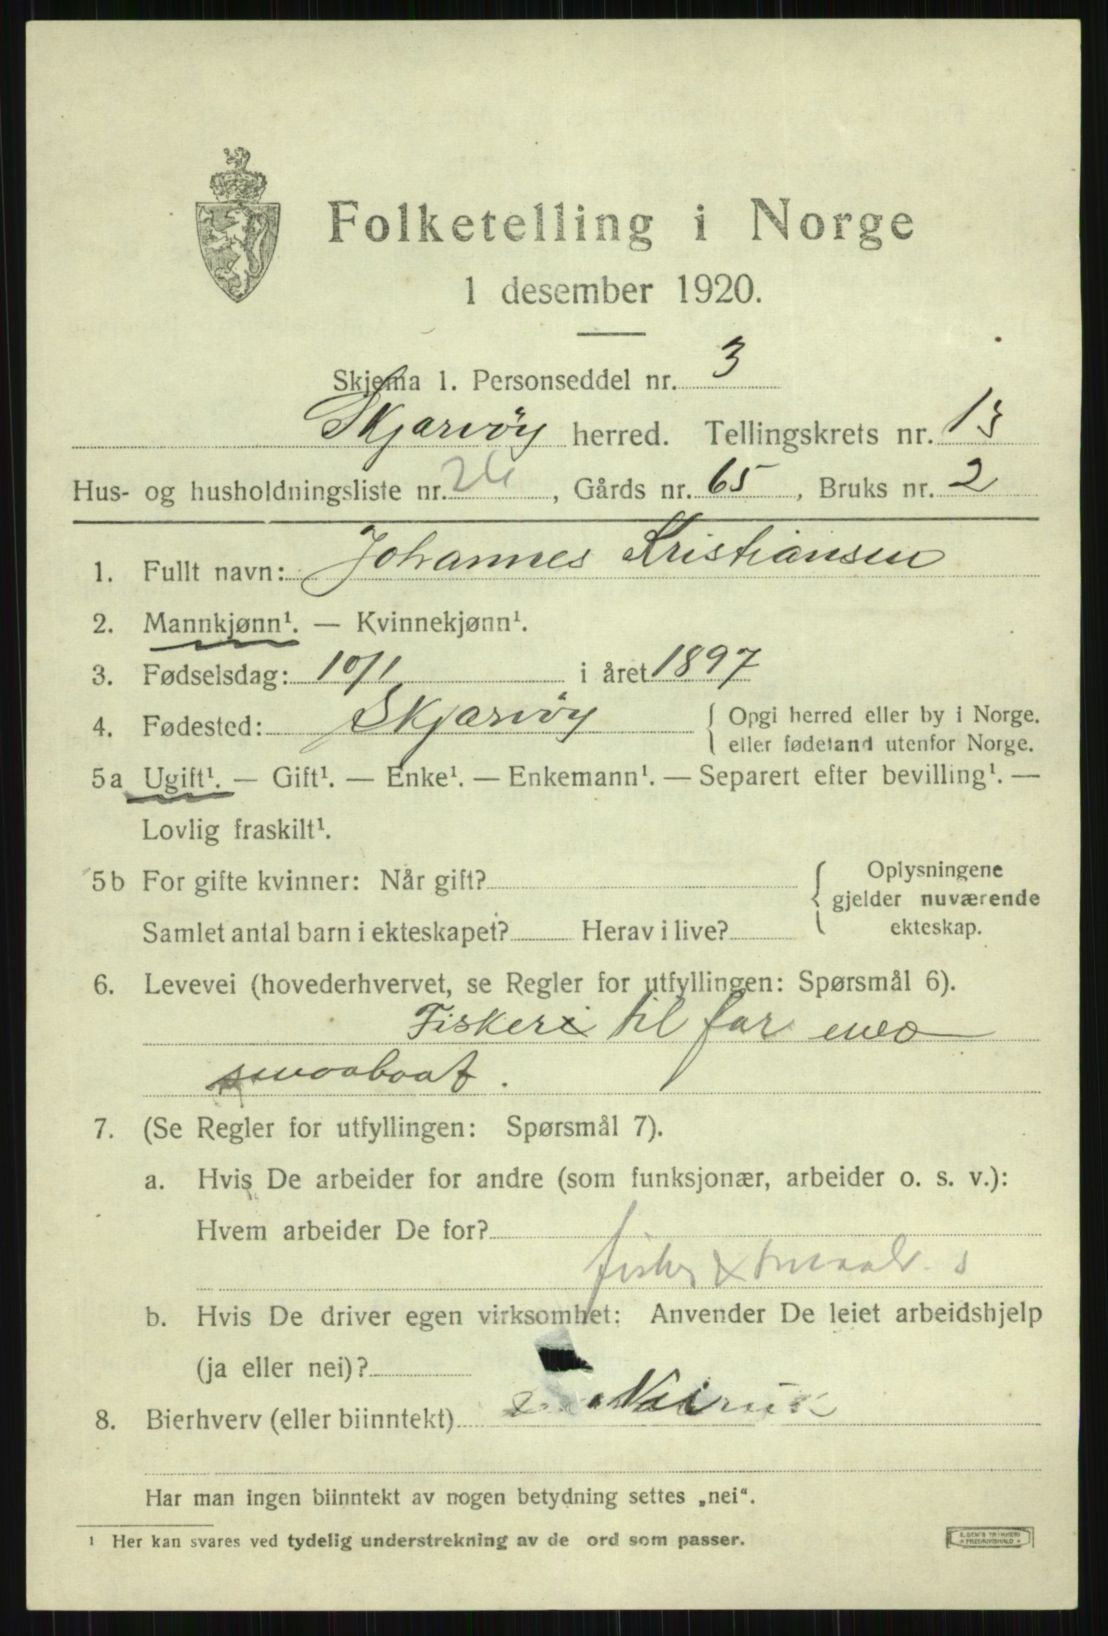 Folketelling i Norge
1 desember 1920.
Skjema 1. Personseddel nr. 3
Skjærvøy herred. Tellingskrets nr. 13
Hus- og husholdningsliste nr. 24, Gårds nr. 65, Bruks nr. 2
1. Fullt navn: Johannes Kristiansen
2. Mannkjønn¹. — Kvinnekjønn¹.
3. Fødselsdag: 10/1 i året 1897
4. Fødested: Skjærvöy { Opgi herred eller by i Norge.
eller fødeland utenfor Norge.
5a Ugift¹. — Gift¹. — Enke¹. — Enkemann¹. — Separert efter bevilling¹. —
Lovlig fraskilt¹.
5b For gifte kvinner: Når gift? { Oplysningene
gjelder nuværende
Samlet antal barn i ekteskapet? Herav i live? ekteskap.
6. Levevei (hovederhvervet, se Regler for utfyllingen: Spørsmål 6).
Fiskeri til far med
smaabaat.
7. (Se Regler for utfyllingen: Spørsmål 7).
a. Hvis De arbeider for andre (som funksjonær, arbeider o. s. v.):
Hvem arbeider De for?
fisker x s
b. Hvis De driver egen virksomhet: Anvender De leiet arbeidshjelp
(ja eller nei)?
8. Bierhverv (eller biinntekt) Nei
Har man ingen biinntekt av nogen betydning settes „nei“.
¹ Her kan svares ved tydelig understrekning av de ord som passer.